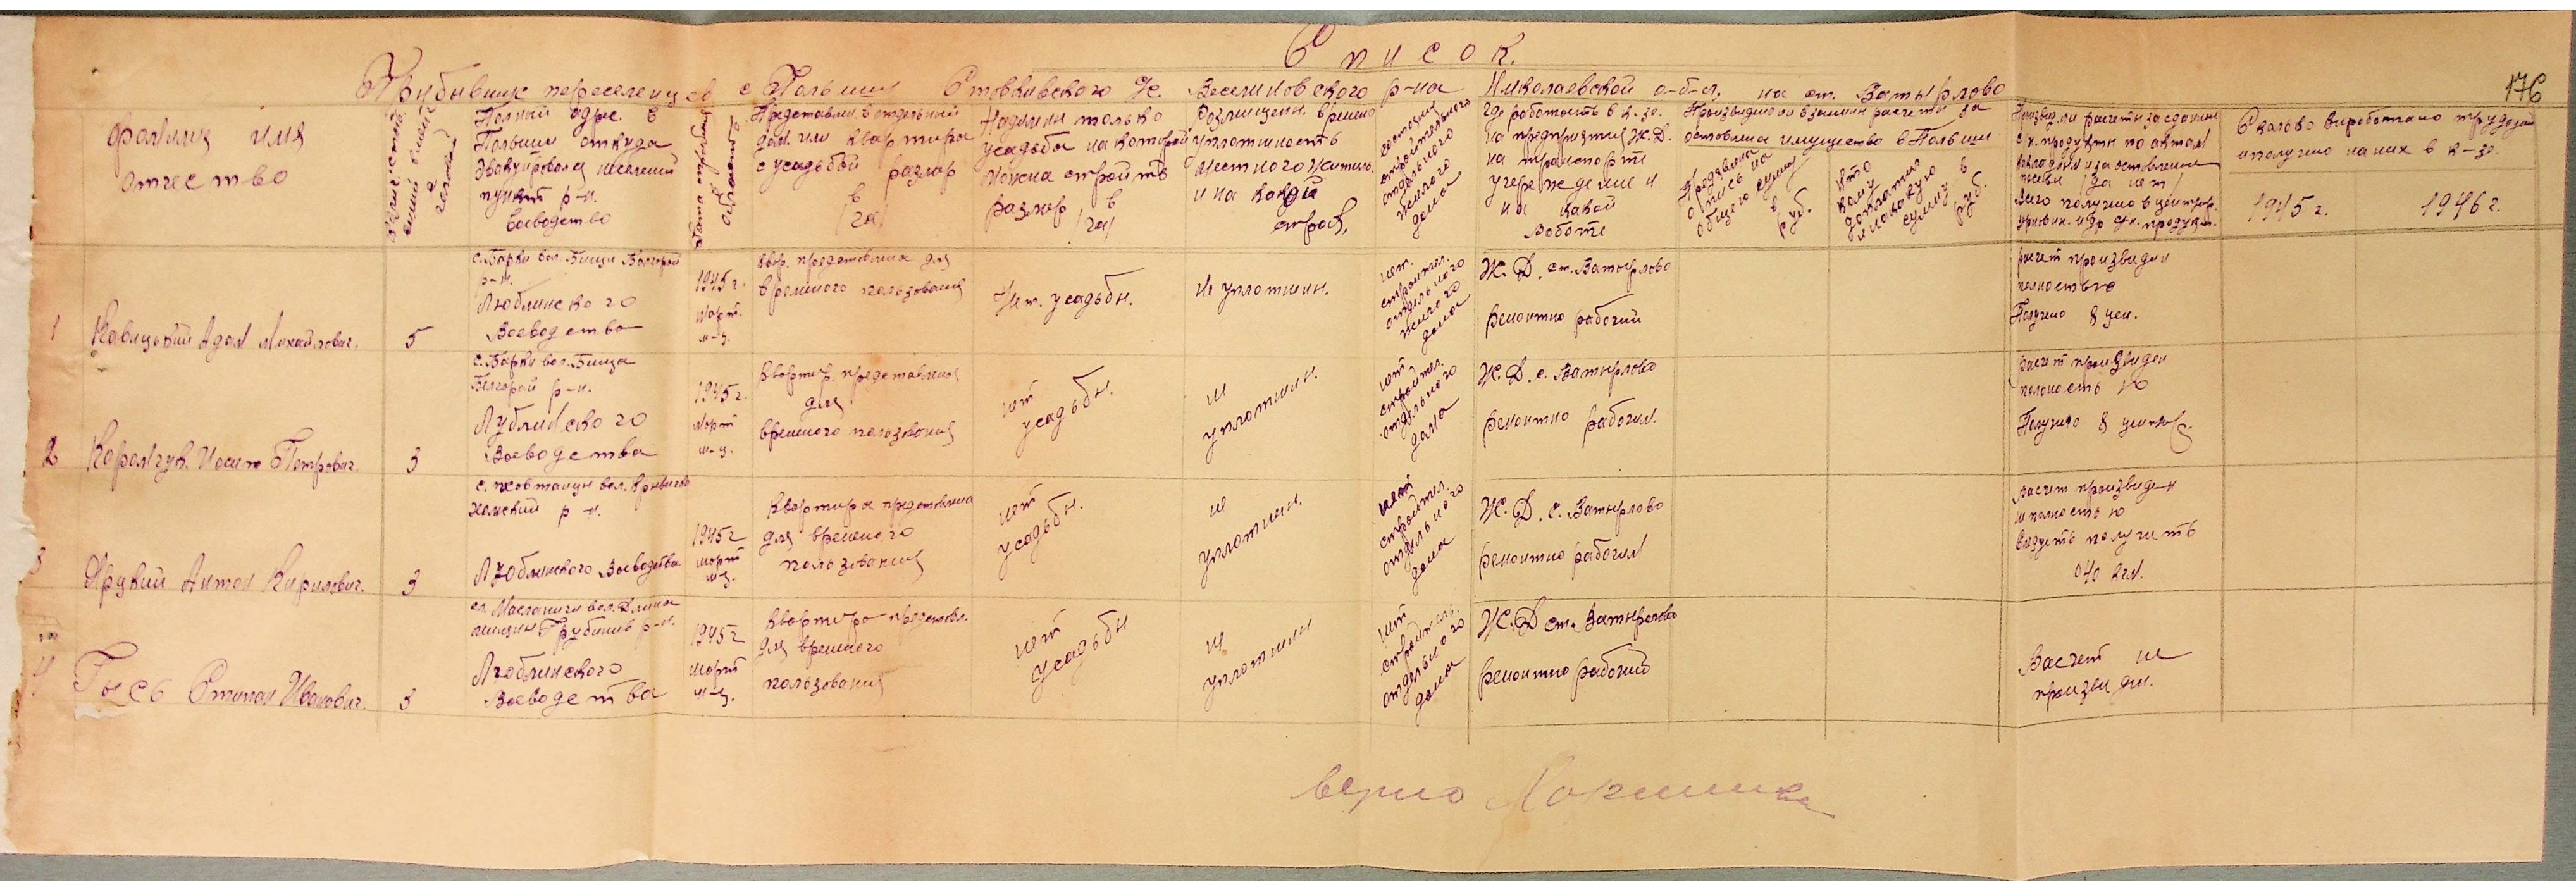 Список.
Прибывших переселенцев с Польши Стовкивского с/с. Веселиновского р-на Николаевской о-б-л, на ст. Ватырлово
176
фамилия имя
отчество
Полный адрес. в
Польши откуда
эвакуировался населений
пункт р-н.
воеводство
Дата прибытия
область
Представлен. в отдельний
дом или квартира
с усадьбой размер
в
/га/
Наделен только
усадьба на которой
можна строить
размер в
/га/
Размещен. времено
уплотненость
местного жителя.
и на какой
строк,
состояния
строительного
отдельного
жилого
дома
где работаеть в к-зе.
на предпрятие Ж.Д.
на транспорте
учереждение и
на какой
работе
Произведено ли взаимни расчети за
оставлена имущество в Польши
на
общею сумму
в
руб.
кто
кому
доплатил
и на какую
сумму в
руб.
Произвед. ли расчеты за сданние
с.х. продукти по актам
/да нет/
Всего получено в центнер.
Сколько выработано трудодней
и получено на них в к-зе.
1945 г.
1946 г.
1
Кавицький Адам Михайлович.
5
с. Барки вол. Бищи Билгорай
р-н.
Люблинского
Воеводства
1945 г.
март.
м-ц.
квар. представлена для
временого пользования
Нет. усадьбы.
Не уплотнен.
нет.
строител.
отдельного
жилого
дома
Ж. Д. ст. Ватырлово
ремонтно рабочий
расчет произведен
полностью
Получено 8 цен.
2
Королчук. Иосип Петрович.
3
с. Барки вол. Бища
Билгорай р-н.
Лублинского
Воеводства
1945 г.
март
м-ц.
квартир. представлена
для
временого пользования
нет
усадьбы.
не
уплотнен.
нет
строител.
отдельного
дома
Ж. Д. с. Ватырлово
ремонтно рабочим.
Расчет произведен
полностью
Получено 8 центнер.
3
Яруцкий Антон Кирилович.
3
Холмский р-н.
Люблинского Воеводства
1945 г
март
м-ц.
квартира представлена
для временого
пользования
нет
усадьбы.
не
уплотнен.
нет
строител.
отдельного
дома
Ж. Д. с. Ватырлово
ремонтно рабочим
Расчет произведен
не полностью
получить
040 кгм.
4
Гысь Степан Иванович.
3
Грубешив р-н.
Люблинского
Воеводства
1945 г
март
м-ц.
квартира представл.
для временого
пользования
нет
усадьбы
не
уплотнен
нет
строитель.
отдельного
дома
Ж. Д ст. Ватырлово
ремонтно рабочий
Расчет не
произведен.
верно